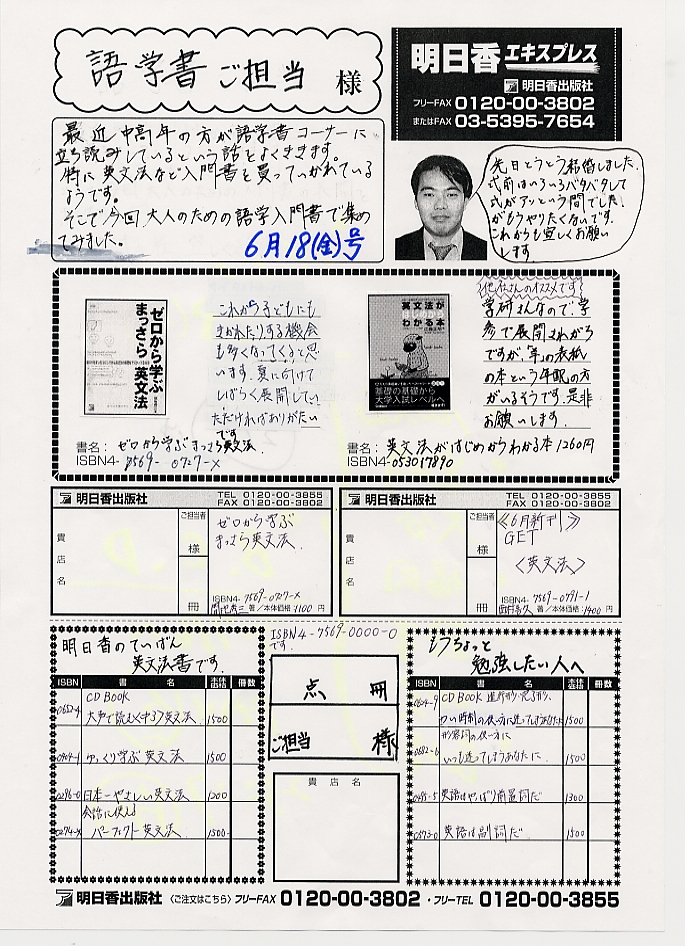 語学書ご担当 様
明日香 エキスプレス
明日香出版社
フリーFAX 0120-00-3802
またはFAX 03-5395-7654
最近中高年の方が語学書コーナーに
立ち読みしているという話をよくききます。
特に英文法など入門書を買っていかれている
ようです。
そこで今回大人のための語学入門書で集め
てみました。
6月18(金)号
先日とうとう結婚しました。
式前はいろいろバタバタして
式がアッという間でした。
がもうやりたくないです。
これからも宜しくお願い
します。
ゼロから学ぶ
まっさら英文法
これから子どもにも
きかれたりする機会
も多くなってくると思
います。夏に向けて
しばらく展開してい
ただければありがたい
です。
書名: ゼロから学ぶまっさら英文法.
ISBN4- 7569- 0727-X
英文法が
はじめから
わかる本
基礎の基礎から
大学入試レベルへ
他社さんのオススメです
学研さんなので、学
参で展開されがち
ですが、年の表紙
の本という年配の方
がいるそうです。是非
お願いします.
書名: 英文法がはじめからわかる本1260円
ISBN4-053017890
明日香出版社 TEL 0120-00-3855
FAX 0120-00-3802
貴店名
ご担当者
様
冊
ゼロから学ぶ
まっさら英文法.
ISBN4- 7569-0727-X
著/本体価格:1100 円
明日香出版社 TEL 0120-00-3855
FAX 0120-00-3802
貴店名
ご担当者
様
冊
≪6月新刊≫
GET
〈英文法〉
ISBN4- 7569-0791-1
著/本体価格:1400 円
明日香のていばん
英文法書です.
ISBN 書名 本体価格 冊数
CD BOOK
0652-4 大声で読む英文法 1500
0904-1 ゆっくり学ぶ英文法 1500
0296-0 日本一やさしい英文法 1200
会話に使える
0274-X パーフェクト英文法 1500
ISBN4-7569-0000-0
です.
点 冊
ご担当 様
貴店名
もうちょっと
勉強したい人へ
ISBN 書名 本体価格 冊数
0604-9 CD BOOK 進行形・完了形、
の使い方に迷ってしまうあなたに 1500
形容詞の使い方に
0682-6 いつも迷ってしまうあなたに. 1500
0495-5 英語はやっぱり前置詞だ 1300
0573-0 英語は副詞だ. 1500
明日香出版社 〈ご注文はこちら〉フリーFAX 0120-00-3802 ・フリーTEL 0120-00-3855